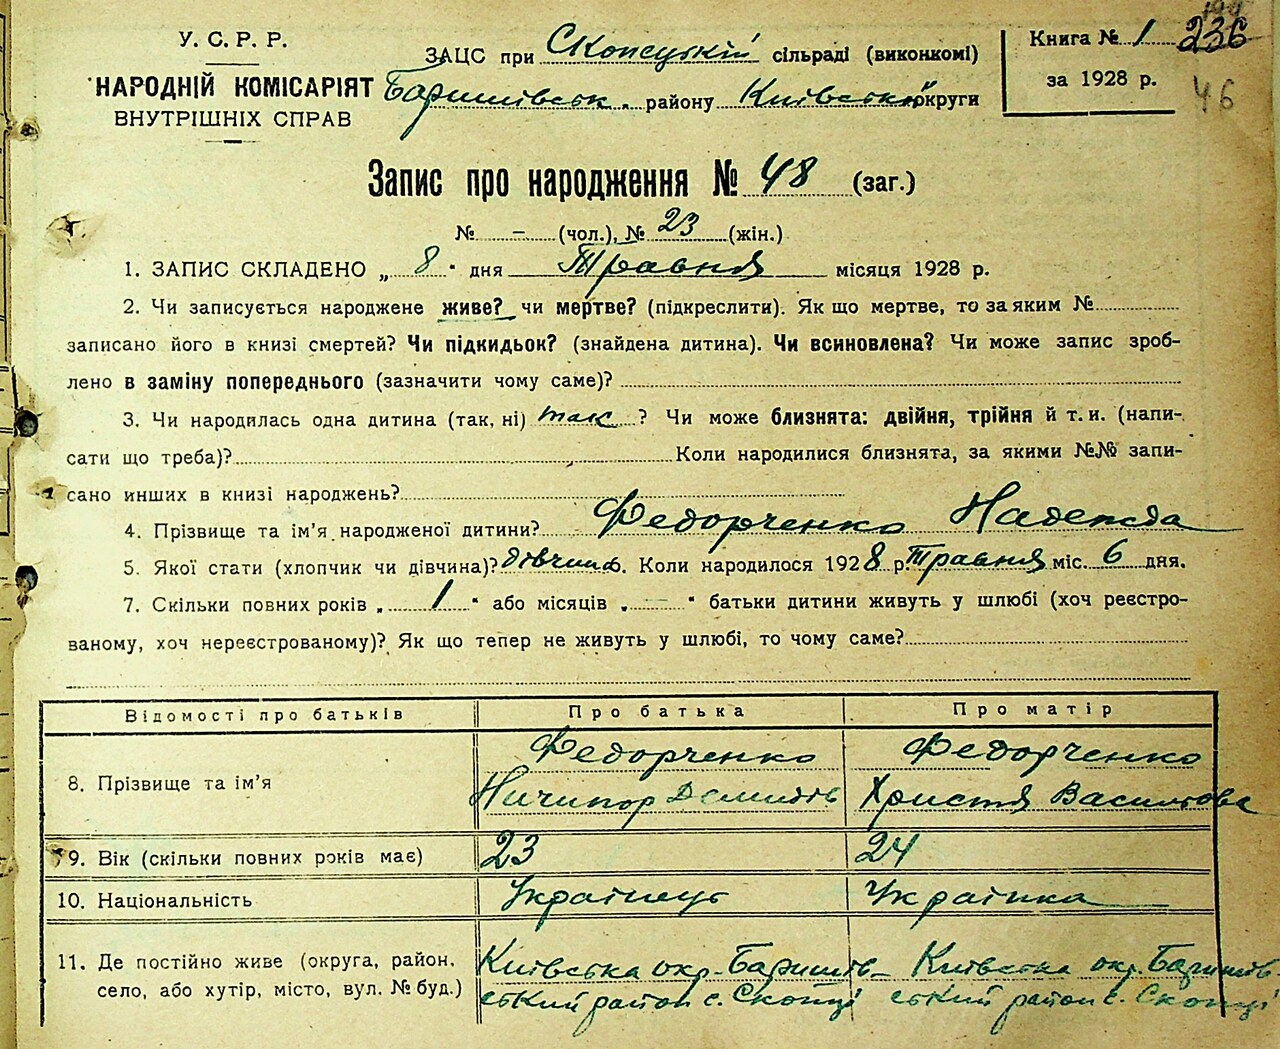 У. С. Р. Р.
НАРОДНІЙ КОМІСАРІЯТ
ВНУТРІШНІХ СПРАВ
ЗАЦС при Скопецькій сільраді (виконкомі)
Баришівськ. району Київської округи
Книга № 1 236
за 1928 р. 46
Запис про народження № 48 (заг.)
№ - (чол.), № 23 (жін.)
1. ЗАПИС СКЛАДЕНО „ 8 " дня Травня місяця 1928 р.
2. Чи записується народжене живе? чи мертве? (підкреслити). Як що мертве, то за яким №
записано його в книзі смертей? Чи підкидьок? (знайдена дитина). Чи всиновлена? Чи може запис зроб-
лено в заміну попереднього (зазначити чому саме)?
3. Чи народилась одна дитина (так, ні) так ? Чи може близнята: двійня, трійня й т. и. (напи-
сати що треба)? Коли народилися близнята, за якими №№ запи-
сано инших в книзі народжень?
4. Прізвище та ім'я народженої дитини? Федорченко Надежда
5. Якої стати (хлопчик чи дівчина)? дівчина. Коли народилося 1928 р. Травня міс. 6 дня.
7. Скільки повних років „ 1 " або місяців „ — " батьки дитини живуть у шлюбі (хоч реєстро-
ваному, хоч нереєстрованому)? Як що тепер не живуть у шлюбі, то чому саме?
Відомості про батьків Про батька Про матір
8. Прізвище та ім'я Федорченко Федорченко
Ничипор Демидів Христя Васильова
9. Вік (скільки повних років має) 23 24
10. Національність Українець Українка
11. Де постійно живе (округа, район, Київська окр. Баришів- Київська окр. Баришів
село, або хутір, місто, вул. № буд.) ський район с. Скопці ський район с. Скопці